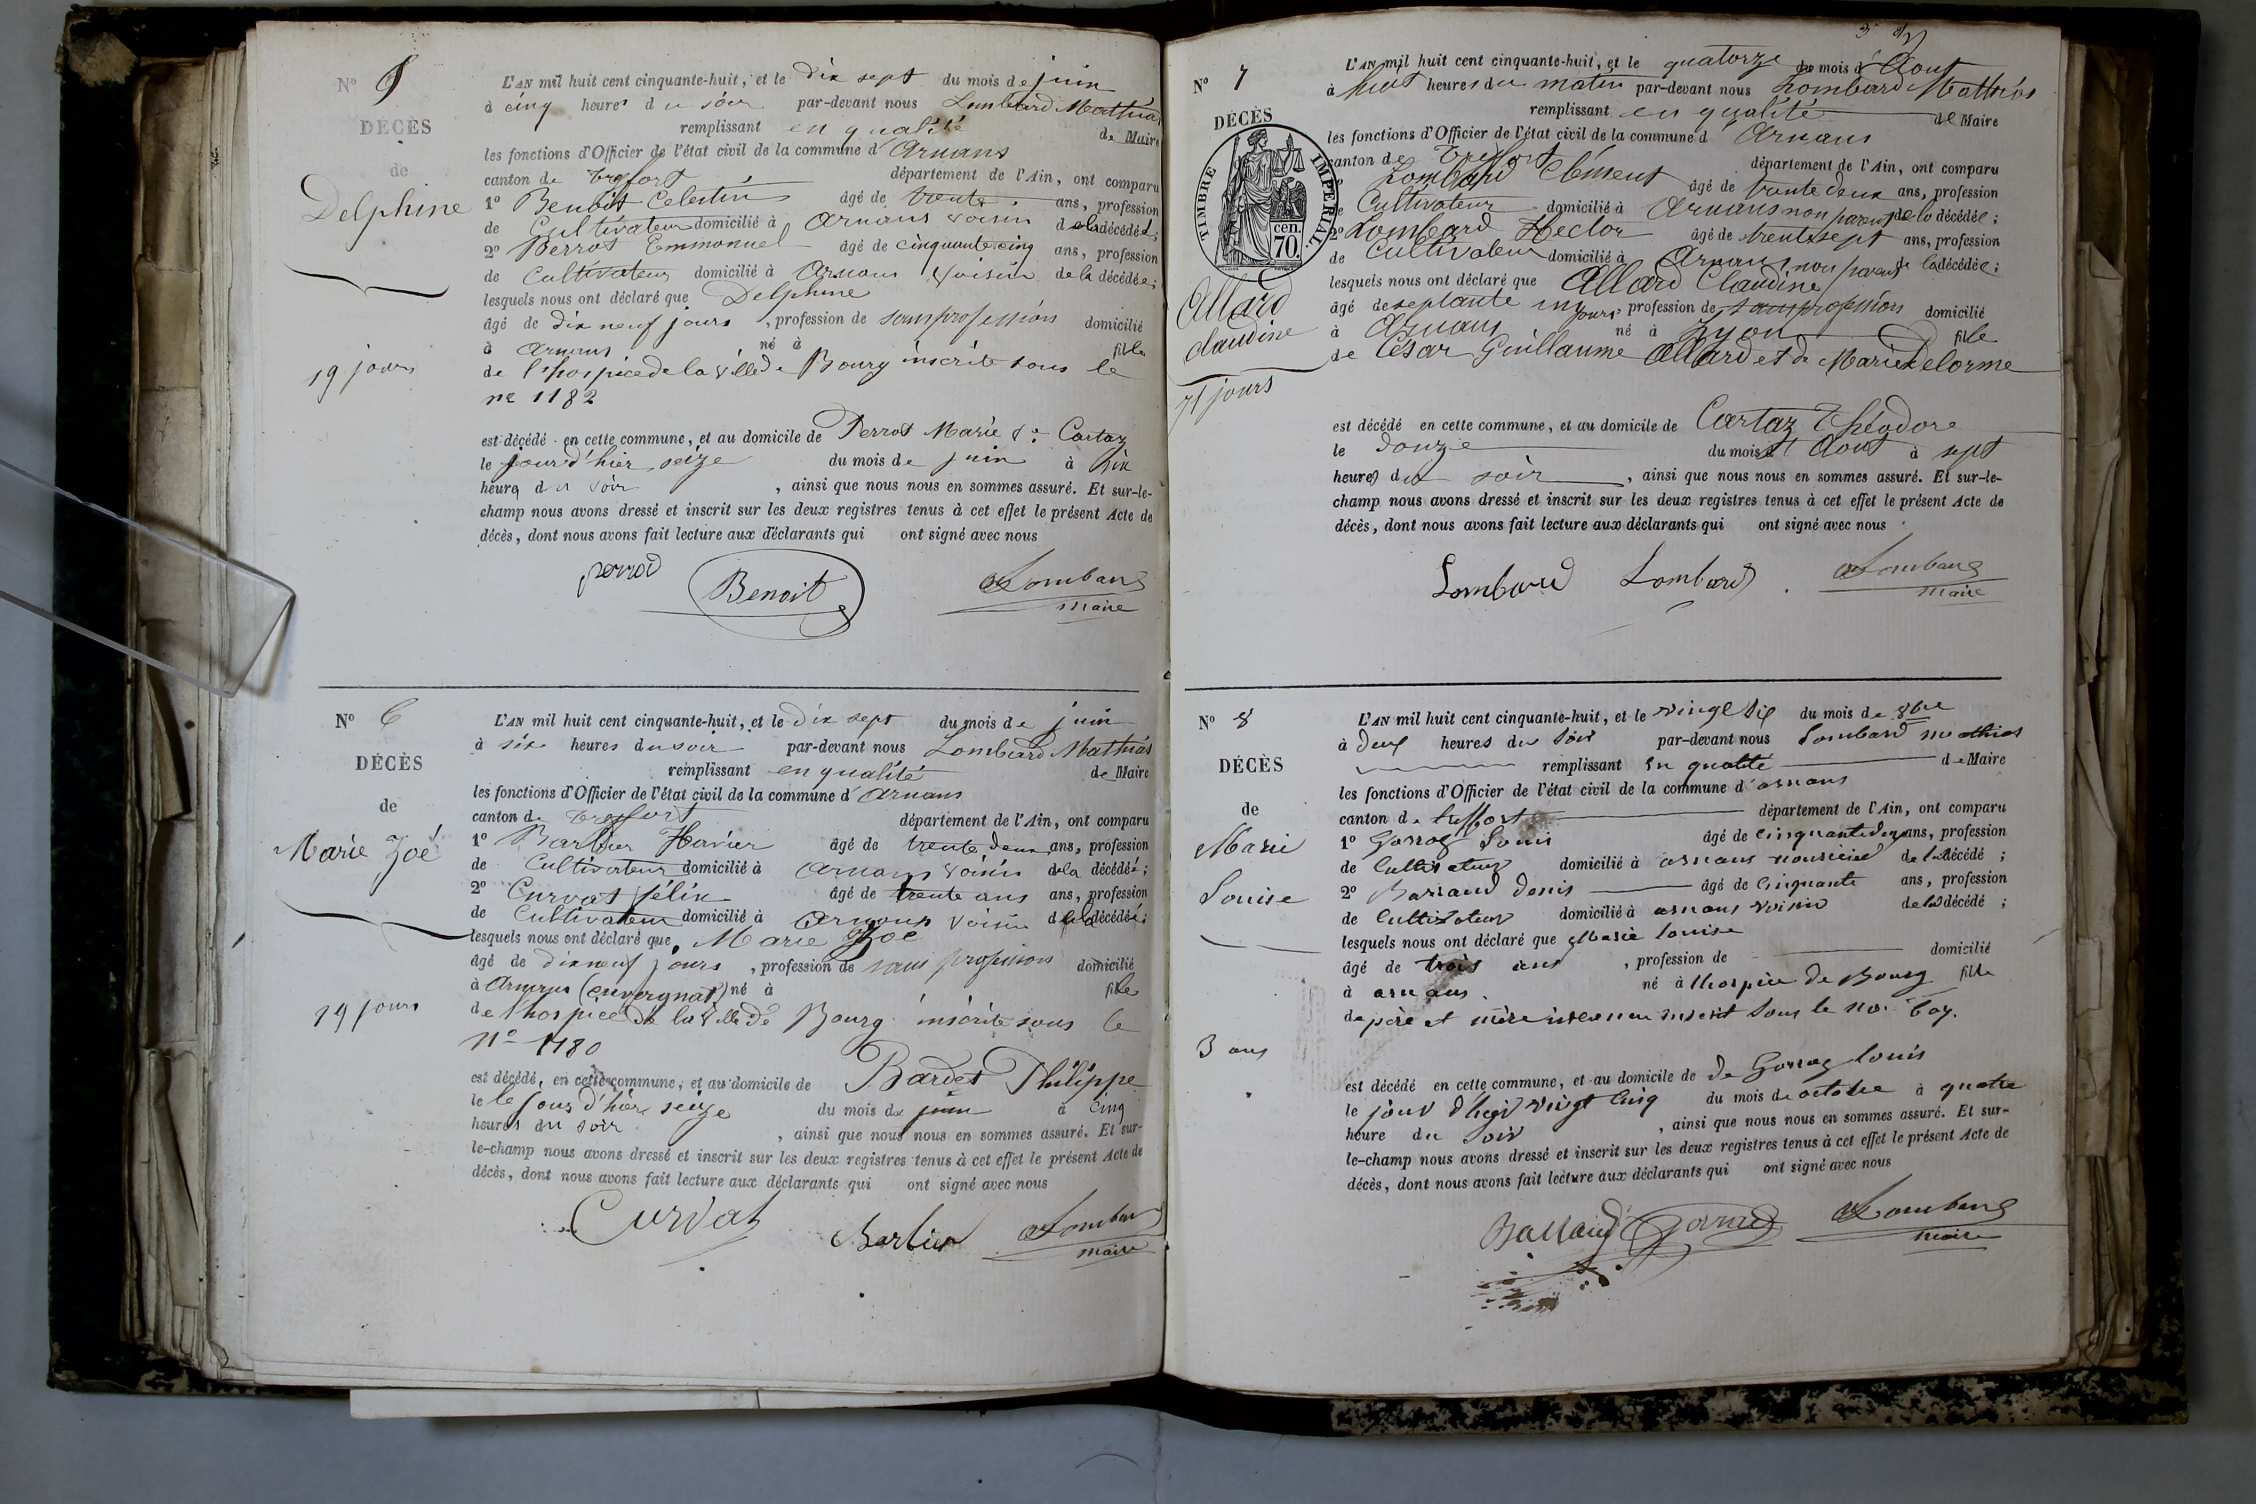 N° 5
DÉCÈS
de
Delphine
19 jours
L'AN mil huit cent cinquante-huit, et le dix sept du mois de juin
à cinq heures du soir par-devant nous Lombard Mathias
remplissant en qualité de Maire
les fonctions d'Officier de l'état civil de la commune d'Arnans
canton de treffort département de l'Ain, ont comparu
1° Benoit Celestin âgé de trente ans, profession
de Cultivateur domicilié à Arnans voisin de la décédée;
2° Perrot Emmanuel âgé de cinquante cinq ans, profession
de Cultivateur domicilié à Arnans voisin de la décédée;
lesquels nous ont déclaré que Delphine
âgé de dix neuf jours, profession de sans profession domicilié
à Arnans né à fille
de l'hospice de la ville de Bourg inscrite sous le
n° 1182
est décédé en cette commune, et au domicile de Perrot Marie fe Cartaz
le jour d'hier seize du mois de juin à six
heures du soir, ainsi que nous nous en sommes assuré. Et sur-le-
champ nous avons dressé et inscrit sur les deux registres tenus à cet effet le présent Acte de
décès, dont nous avons fait lecture aux déclarants qui ont signé avec nous
perrod Benoit Lombard
maire
N° 6
DÉCÈS
de
Marie Zoé
19 jours
L'AN mil huit cent cinquante-huit, et le dix sept du mois de juin
à six heures du soir par-devant nous Lombard Mathias
remplissant en qualité de Maire
les fonctions d'Officier de l'état civil de la commune d'Arnans
canton de treffort département de l'Ain, ont comparu
1° Barbier Xavier âgé de trente deux ans, profession
de Cultivateur domicilié à Arnans voisin de la décédée;
2° Curvat félix âgé de trente ans ans, profession
de Cultivateur domicilié à Arnans voisin de la décédée;
lesquels nous ont déclaré que Marie Zoé
âgé de dix neuf jours, profession de sans profession domicilié
à Arnans né à fille
de l'hospice de la ville de Bourg inscrite sous le
N° 1180
est décédé, en cette commune, et au domicile de Bardet Philippe
le le jour d'hier seize du mois de juin à cinq
heures du soir, ainsi que nous nous en sommes assuré. Et sur-
le-champ nous avons dressé et inscrit sur les deux registres tenus à cet effet le présent Acte de
décès, dont nous avons fait lecture aux déclarants qui ont signé avec nous
Curvat Barbier Lombard
maire
N° 7
DÉCÈS
TIMBRE IMPÉRIAL.
cen.
70.
Allard
claudine
71 jours
L'AN mil huit cent cinquante-huit, et le quatorze du mois d'Aout
à huit heures du matin par-devant nous Lombard Mathias
remplissant en qualité de Maire
les fonctions d'Officier de l'état civil de la commune d'Arnans
canton de treffort département de l'Ain, ont comparu
Lombard Clément âgé de trente deux ans, profession
de Cultivateur domicilié à Arnans non parent de la décédée;
2° Lombard Hector âgé de trente sept ans, profession
de Cultivateur domicilié à Arnans non parent de la décédée;
lesquels nous ont déclaré que Allard Claudine
âgé de septante un jours profession de sans profession domicilié
à Arnans né à Lyon fille
de César Guillaume Allard et de Marie Delorme
est décédé en cette commune, et au domicile de Cartaz Théodore
le douze du mois d'Aout à sept
heures du soir, ainsi que nous nous en sommes assuré. Et sur-le-
champ nous avons dressé et inscrit sur les deux registres tenus à cet effet le présent Acte de
décès, dont nous avons fait lecture aux déclarants qui ont signé avec nous
Lombard Lombard Lombard
maire
N° 8
DÉCÈS
de
Marie
Louise
3 ans
L'AN mil huit cent cinquante-huit, et le vingt six du mois de 8bre
à deux heures du soir par-devant nous Lombard mathias
remplissant en qualité de Maire
les fonctions d'Officier de l'état civil de la commune d'arnans
canton de treffort département de l'Ain, ont comparu
1° Louis âgé de cinquante deux ans, profession
de Cultivateur domicilié à arnans nouricier de la décédé;
2° Barraud denis âgé de cinquante ans, profession
de Cultivateur domicilié à arnans voisin de la décédé;
lesquels nous ont déclaré que Marie louise
âgé de trois ans, profession de domicilié
à arnans né à lhospice de Bourg fille
de père et mère inconnu inscrit sous le no
est décédé en cette commune, et au domicile de de louis
le jour d'hier vingt cinq du mois de octobre à quatre
heure du soir, ainsi que nous nous en sommes assuré. Et sur-
le-champ nous avons dressé et inscrit sur les deux registres tenus à cet effet le présent Acte de
décès, dont nous avons fait lecture aux déclarants qui ont signé avec nous
Lombard
maire